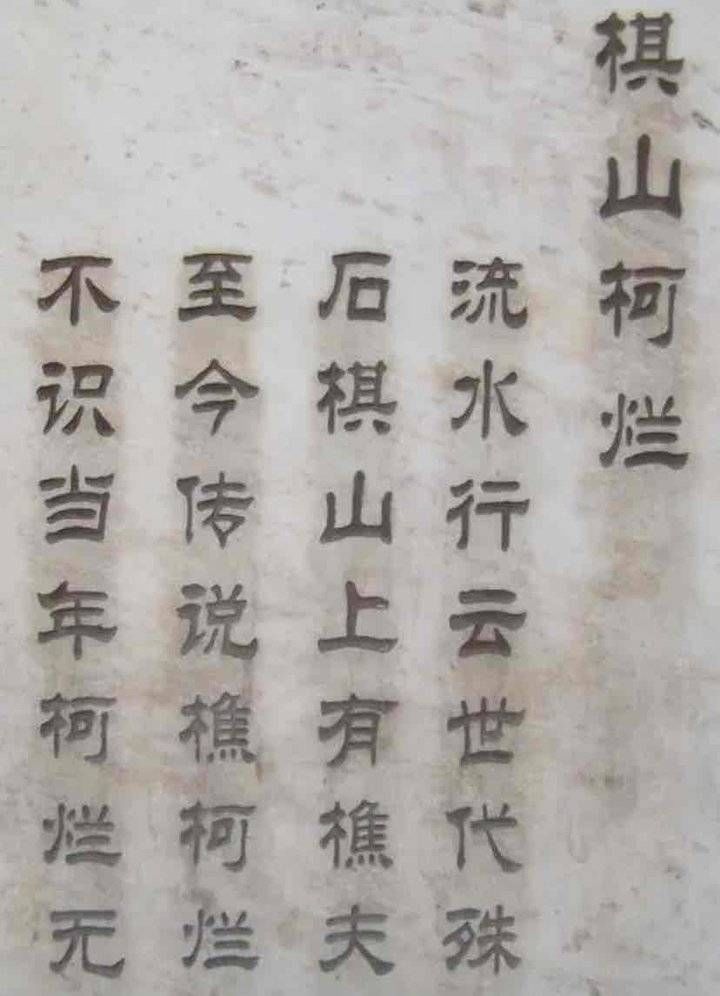 棋山柯烂
流水行云世代殊
石棋山上有樵夫
至今传说樵柯烂
不识当年柯烂无